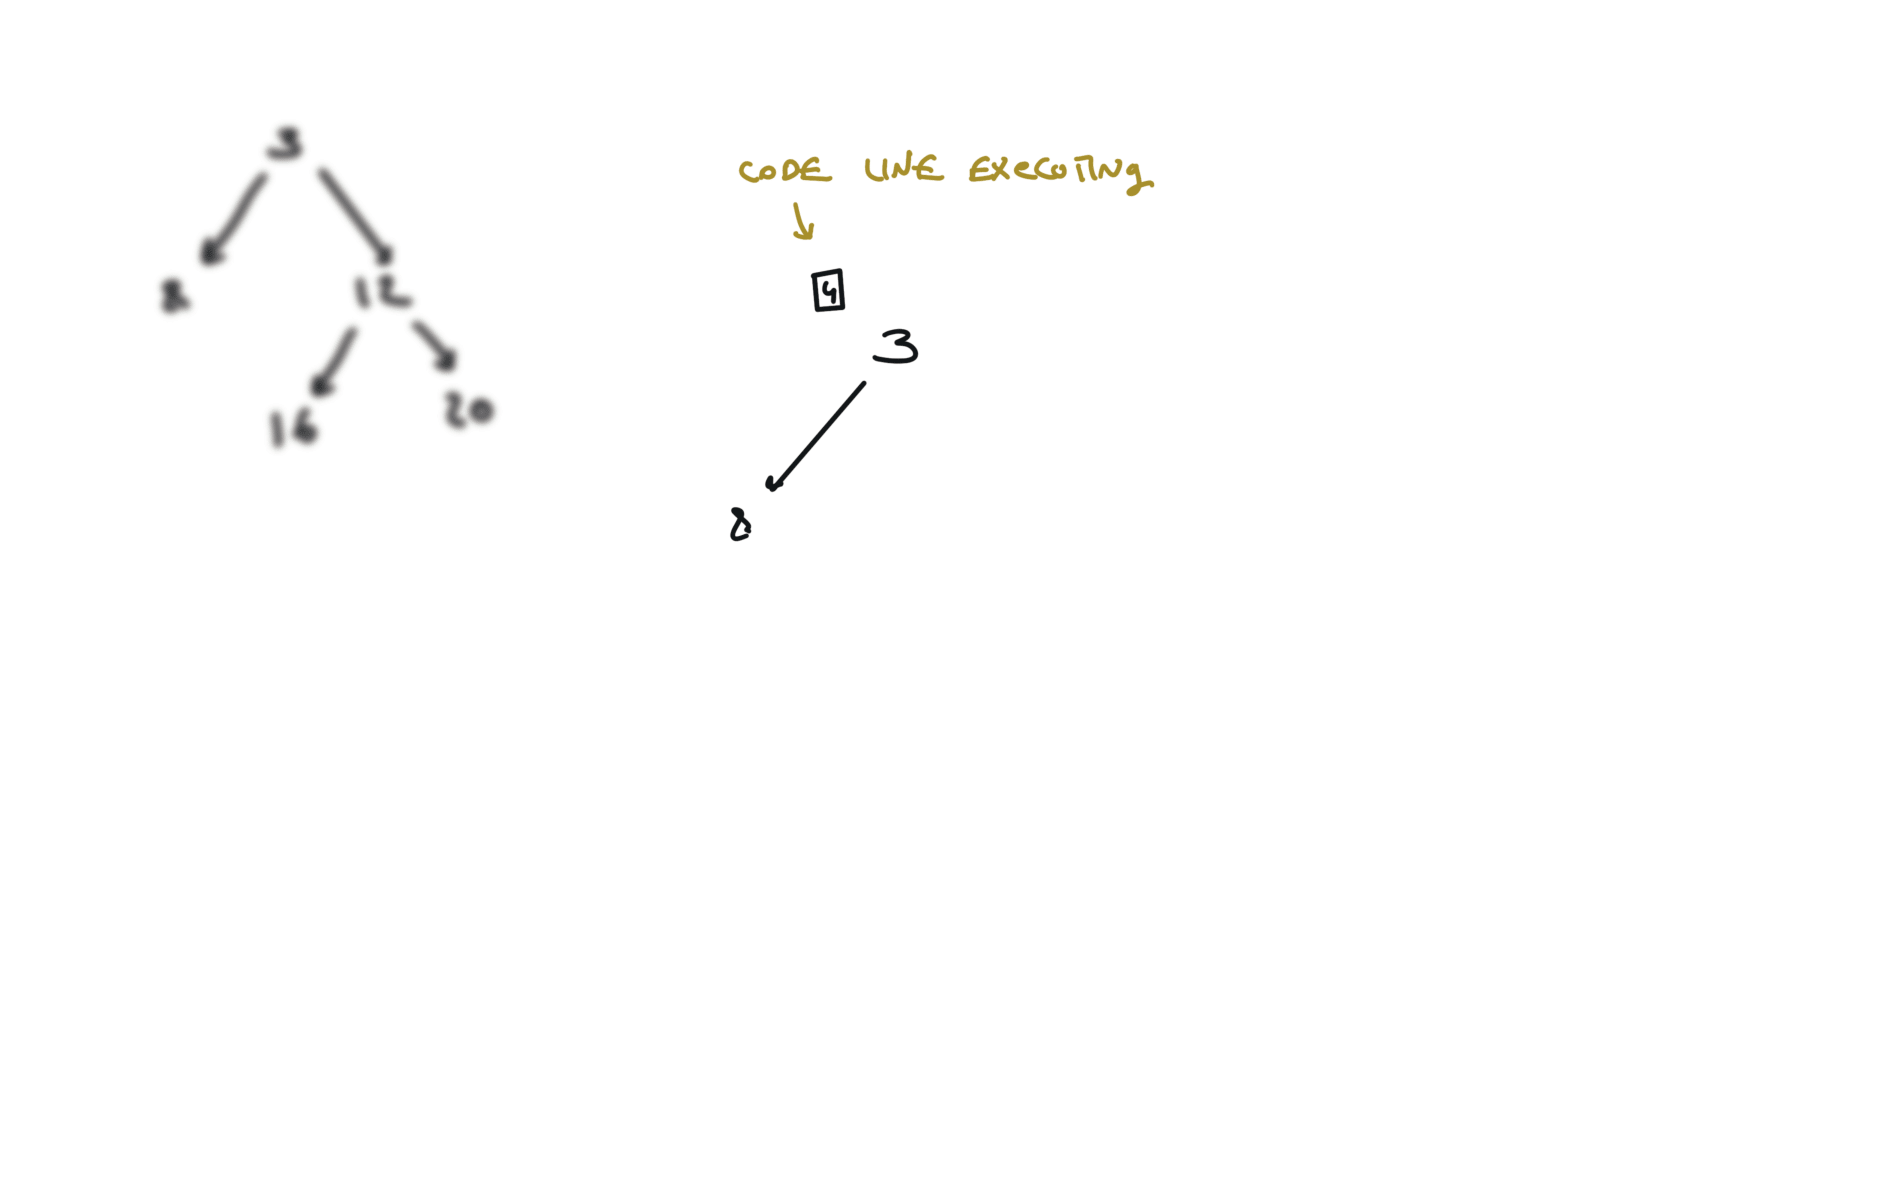 3
8
12
16
20
CODE LINE EXECUTING
4
3
8